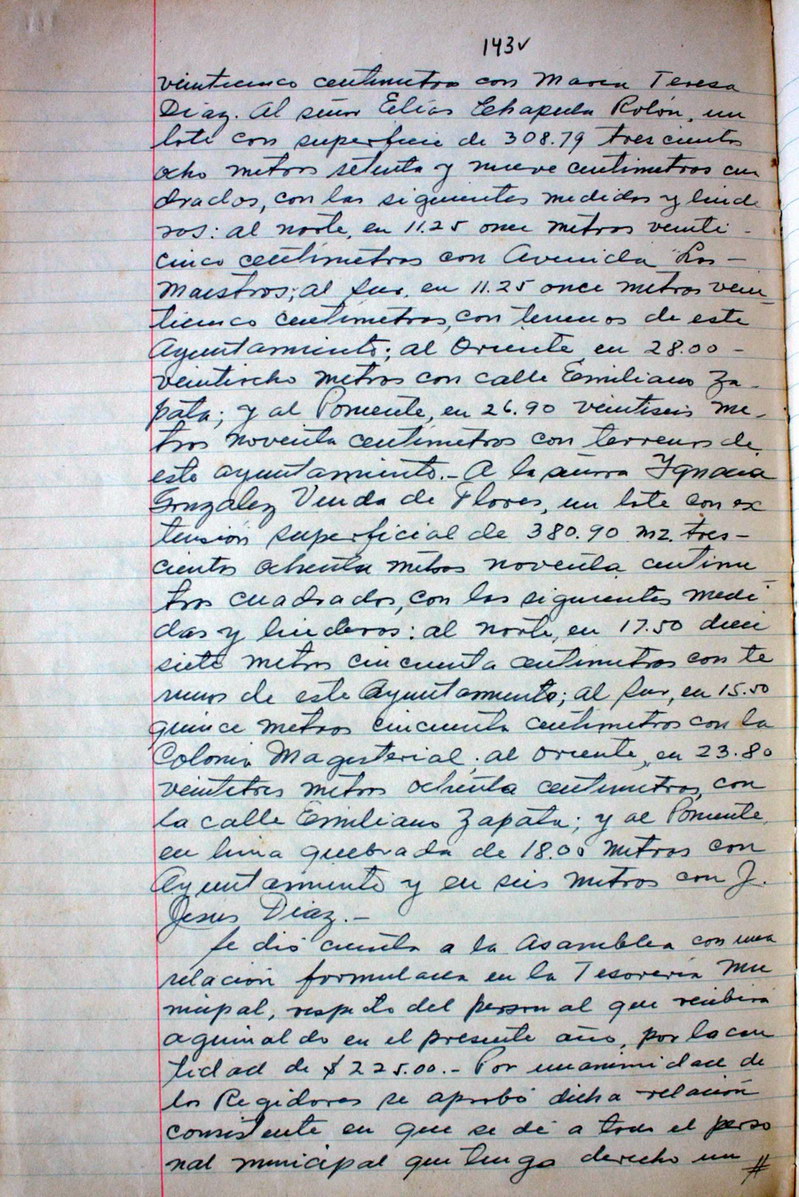 143v
veinticinco centimetros con Maria Teresa
Diaz. Al señor Elías Chapula Rolón, un
lote con superficie de 308.79 trescientos
ocho metros setenta y nueve centimetros cua
drados, con las siguientes medidas y linde
ros: al norte, en 11.25 once metros veinti-
cinco centimetros con Avenida Los-
Maestros; al Sur, en 11.25 once metros vein_
ticinco centimetros, con terrenos de este
Ayuntamiento; al Oriente en 28.00-
veintiocho metros con calle Emiliano Za-
pata; y al Poniente, en 26.90 veintiseis me-
tros noventa centimetros con terrenos de
este ayuntamiento.- A la señora Ygnacia
González Viuda de Flores, un lote con ex
tensión superficial de 380.90 m2. tres-
cientos ochenta metros noventa centime-
tros cuadrados, con las siguientes medi
das y linderos: al norte, en 17.50 dieci
siete metros cincuenta centimetros con te
rrenos de este Ayuntamiento; al Sur, en 15.50
quince metros cincuenta centimetros con la
Colonia Magisterial; al oriente, en 23.80
veintetres metros ochenta centimetros, con
la calle Emiliano Zapata; y al Poniente,
en linia quebrada de 18.00 metros con
Ayuntamiento y en seis metros con J.
Jesus Diaz.-
Se dió cuenta a la Asamblea con una
relación formulada en la Tesorería Mu
nicipal, respecto del personal que recibirá
aguinaldo en el presente año, por la can
tidad de $225.00.- Por unanimidad de
los Regidores se aprobó dicha relación
consistente en que se dé a todo el perso
nal municipal que tenga derecho un #